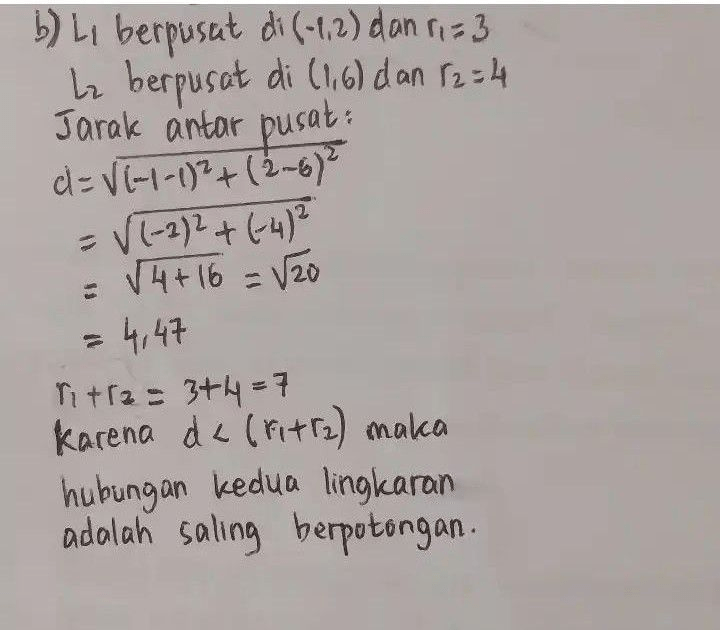 b) L₁ berpusat di (-1,2) dan r₁ = 3
L₂ berpusat di (1,6) dan r₂ = 4
Jarak antar pusat:
d = √((-1-1)² + (2-6)²)
= √((-2)² + (-4)²)
= √(4+16) = √20
= 4,47
r₁ + r₂ = 3+4 = 7
Karena d < (r₁+r₂) maka
hubungan kedua lingkaran
adalah saling berpotongan.